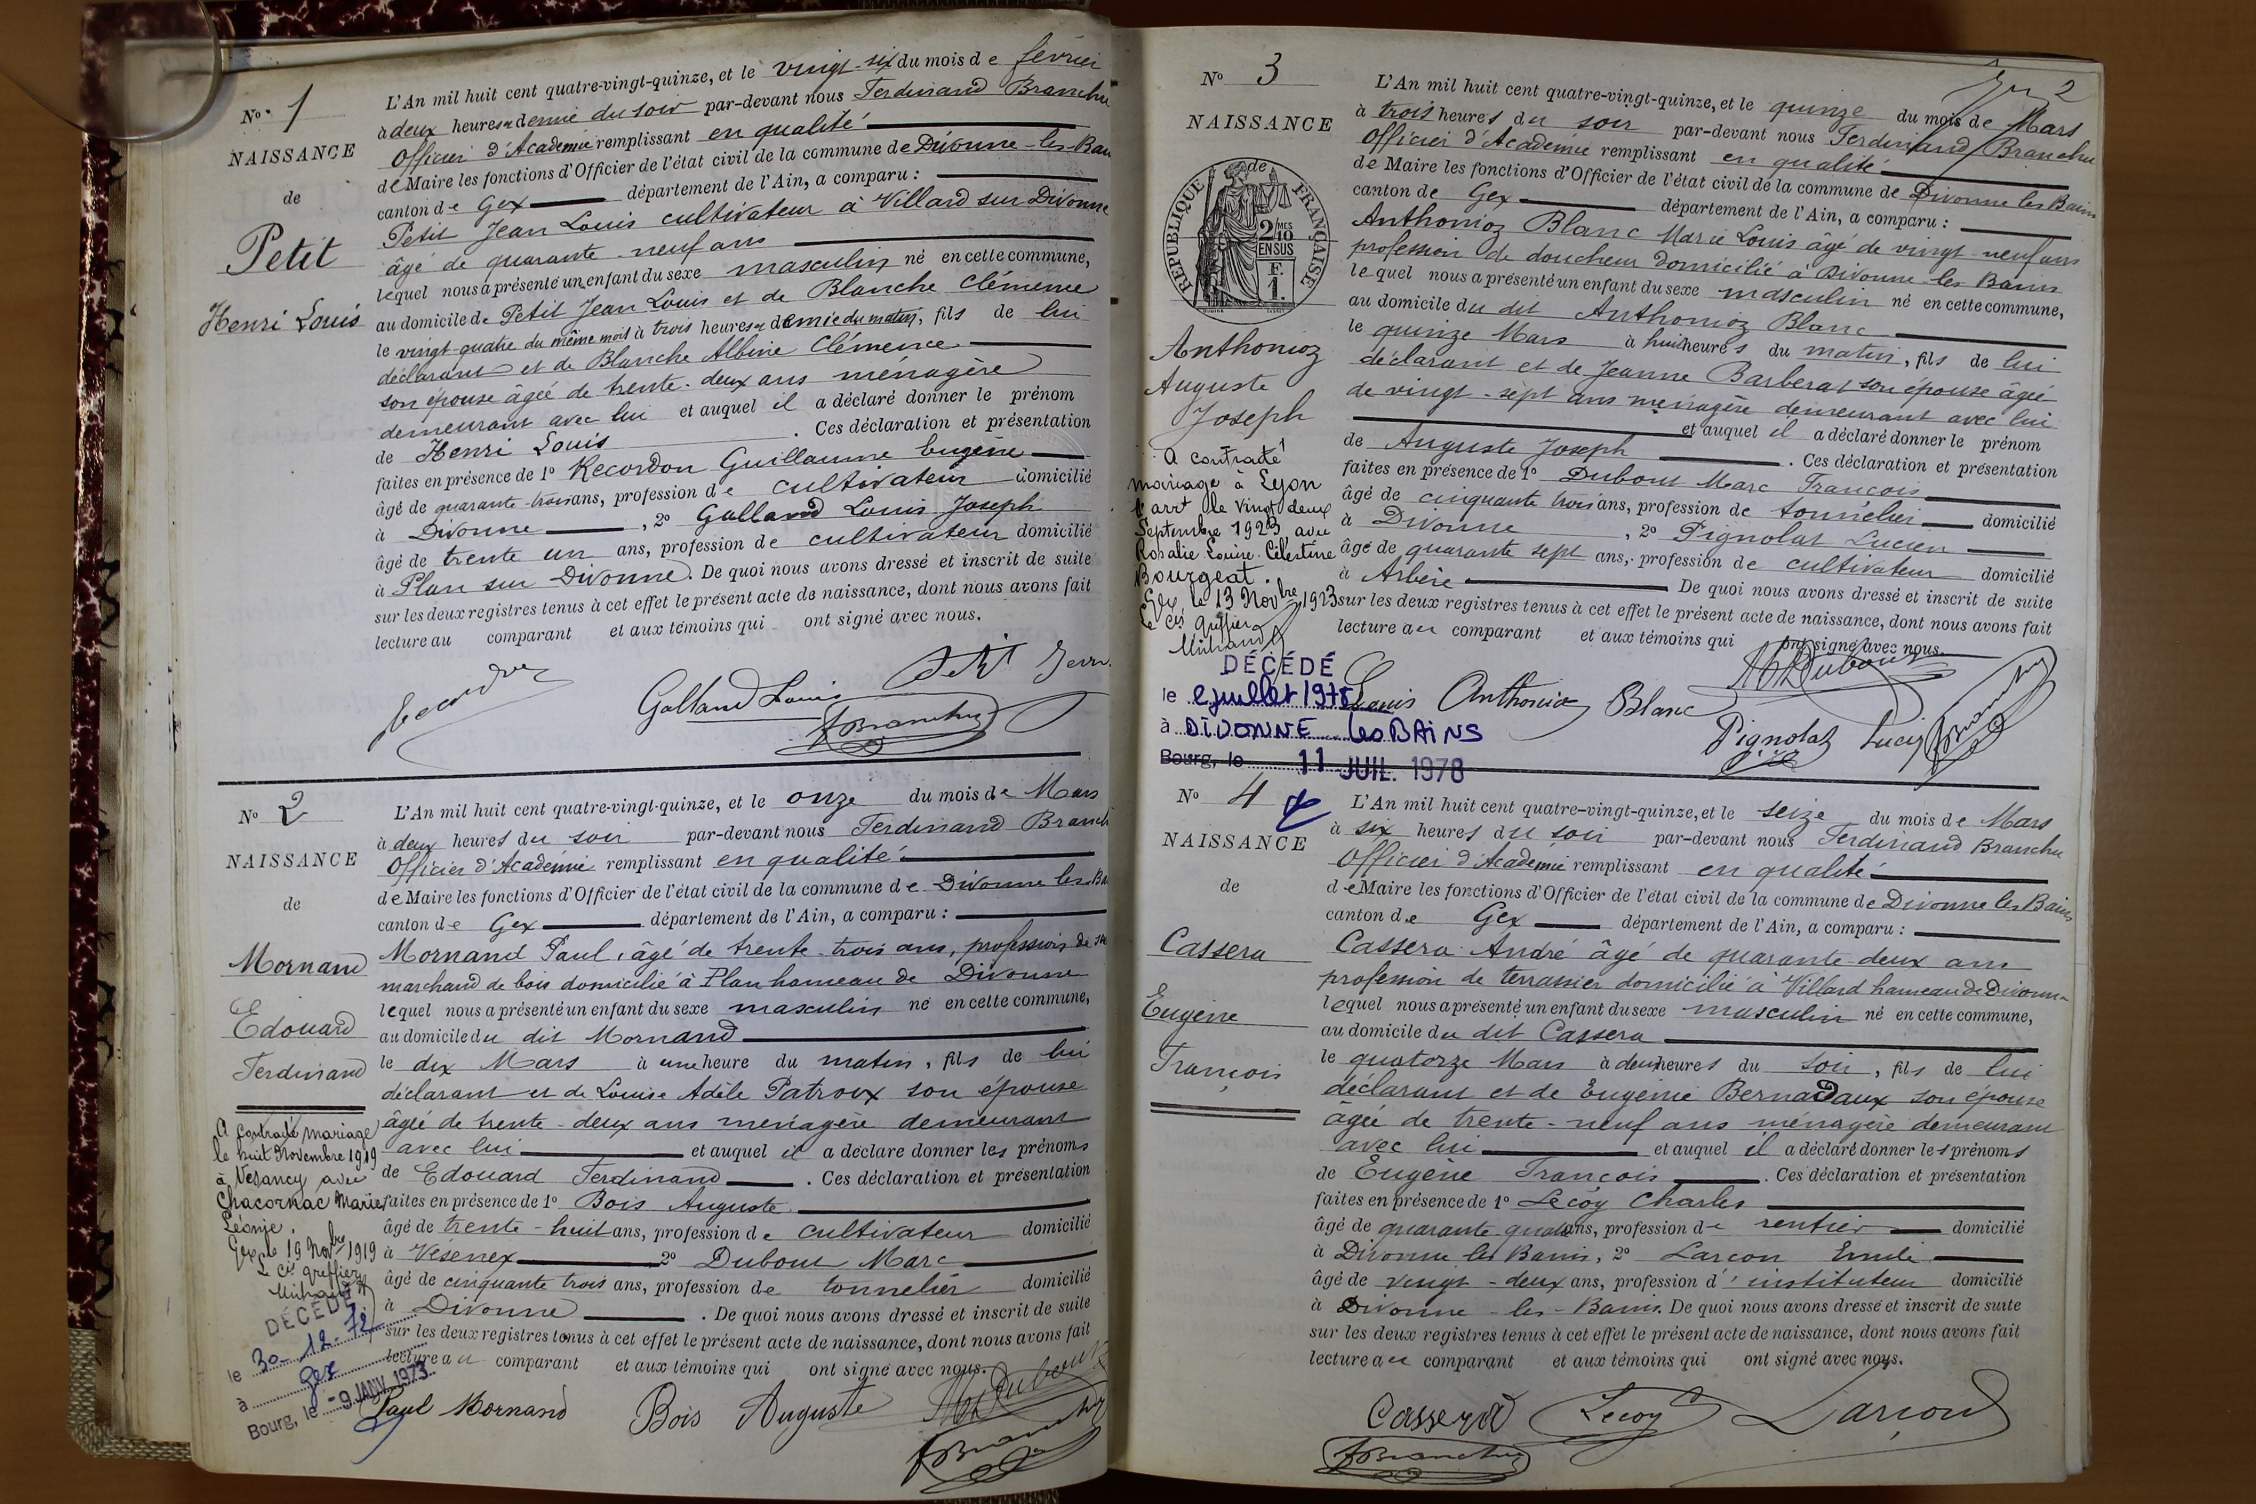 N° 1
NAISSANCE
de
Petit
Henri Louis
L'An mil huit cent quatre-vingt-quinze, et le vingt-six du mois de février
à deux heures & demie du soir par-devant nous Ferdinand Branchu
Officier d'Académie remplissant en qualité
de Maire les fonctions d'Officier de l'état civil de la commune de Divonne-les-Bains
canton de Gex département de l'Ain, a comparu :
Petit Jean Louis cultivateur à Villard sur Divonne
âgé de quarante-neuf ans
lequel nous a présenté un enfant du sexe masculin né en cette commune,
au domicile de Petit Jean Louis et de Blanche Clémence
le vingt-quatre du même mois à trois heures & demie du matin, fils de lui
déclarant et de Blanche Albine Clémence
son épouse âgée de trente-deux ans ménagère
demeurant avec lui et auquel il a déclaré donner le prénom
de Henri Louis. Ces déclaration et présentation
faites en présence de 1° Recordon Guillaume Eugène
âgé de quarante-trois ans, profession de cultivateur domicilié
à Divonne, 2° Galland Louis Joseph
âgé de trente un ans, profession de cultivateur domicilié
à Plan sur Divonne. De quoi nous avons dressé et inscrit de suite
sur les deux registres tenus à cet effet le présent acte de naissance, dont nous avons fait
lecture au comparant et aux témoins qui ont signé avec nous.
Recordon Galland Louis Petit Jean
FBranchu
N° 2
NAISSANCE
de
Mornand
Edouard
Ferdinand
A contracté mariage
le huit Novembre 1919
à Vesancy avec
Chacornac Marie
Léonie.
Gex, le 19 Novbre 1919
Le cis greffier
DÉCÉDÉ
le 30-12-72
à Gex
Bourg, le -9 JANV. 1973
L'An mil huit cent quatre-vingt-quinze, et le onze du mois de Mars
à deux heures du soir par-devant nous Ferdinand Branchu
Officier d'Académie remplissant en qualité
de Maire les fonctions d'Officier de l'état civil de la commune de Divonne les Ba
canton de Gex département de l'Ain, a comparu :
Mornand Paul, âgé de trente-trois ans, profession de
marchand de bois domicilié à Plan hameau de Divonne
lequel nous a présenté un enfant du sexe masculin né en cette commune,
au domicile du dit Mornand
le dix Mars à une heure du matin, fils de lui
déclarant et de Louise Adèle Patroux son épouse
âgée de trente-deux ans ménagère demeurant
avec lui et auquel il a déclaré donner les prénoms
de Edouard Ferdinand. Ces déclaration et présentation
faites en présence de 1° Bois Auguste
âgé de trente-huit ans, profession de cultivateur domicilié
à Vésenex 2° Dubout Marc
âgé de cinquante trois ans, profession de tonnelier domicilié
à Divonne. De quoi nous avons dressé et inscrit de suite
sur les deux registres tenus à cet effet le présent acte de naissance, dont nous avons fait
lecture au comparant et aux témoins qui ont signé avec nous.
Paul Mornand Bois Auguste Dubout
FBranchu
2
N° 3
NAISSANCE
de
RÉPUBLIQUE FRANÇAISE
2/10 MES
EN SUS
F.
1.
Anthonioz
Auguste
Joseph
A contracté
mariage à Lyon
arrt le vingt deux
Septembre 1923 avec
Rosalie Louise Célestine
Bourgeat.
Gex, le 13 Novbre 1923
Le cis greffier
DÉCÉDÉ
le 2 juillet 1978
à DIVONNE les BAINS
Bourg, le 11 JUIL. 1978
L'An mil huit cent quatre-vingt-quinze, et le quinze du mois de Mars
à trois heures du soir par-devant nous Ferdinand Branchu
Officier d'Académie remplissant en qualité
de Maire les fonctions d'Officier de l'état civil de la commune de Divonne les Bains
canton de Gex département de l'Ain, a comparu :
Anthonioz Blanc Marie Louis âgé de vingt-neuf ans
profession de doucheur domicilié à Divonne les Bains
lequel nous a présenté un enfant du sexe masculin né en cette commune,
au domicile du dit Anthonioz Blanc
le quinze Mars à huit heures du matin, fils de lui
déclarant et de Jeanne Barberat son épouse âgée
de vingt-sept ans ménagère demeurant avec lui
et auquel il a déclaré donner le prénom
de Auguste Joseph. Ces déclaration et présentation
faites en présence de 1° Dubout Marc François
âgé de cinquante trois ans, profession de tonnelier domicilié
à Divonne, 2° Pignolat Lucien
âgé de quarante sept ans, profession de cultivateur domicilié
à Arbère De quoi nous avons dressé et inscrit de suite
sur les deux registres tenus à cet effet le présent acte de naissance, dont nous avons fait
lecture au comparant et aux témoins qui ont signé avec nous.
Louis Anthonioz Blanc Dubout
Pignolat Lucien FBranchu
N° 4
NAISSANCE
de
Cassera
Eugène
François
L'An mil huit cent quatre-vingt-quinze, et le seize du mois de Mars
à six heures du soir par-devant nous Ferdinand Branchu
Officier d'Académie remplissant en qualité
de Maire les fonctions d'Officier de l'état civil de la commune de Divonne les Bains
canton de Gex département de l'Ain, a comparu :
Cassera André âgé de quarante-deux ans
profession de terrassier domicilié à Villard hameau de Divonne
lequel nous a présenté un enfant du sexe masculin né en cette commune,
au domicile du dit Cassera
le quatorze Mars à deux heures du soir, fils de lui
déclarant et de Eugénie Bernadaux son épouse
âgée de trente-neuf ans ménagère demeurant
avec lui et auquel il a déclaré donner les prénoms
de Eugène François. Ces déclaration et présentation
faites en présence de 1° Lecoy Charles
âgé de quarante-quatre ans, profession de rentier domicilié
à Divonne les Bains, 2° Larçon Emile
âgé de vingt-deux ans, profession d'instituteur domicilié
à Divonne-les-Bains. De quoi nous avons dressé et inscrit de suite
sur les deux registres tenus à cet effet le présent acte de naissance, dont nous avons fait
lecture au comparant et aux témoins qui ont signé avec nous.
Cassera Lecoy Larçon
FBranchu